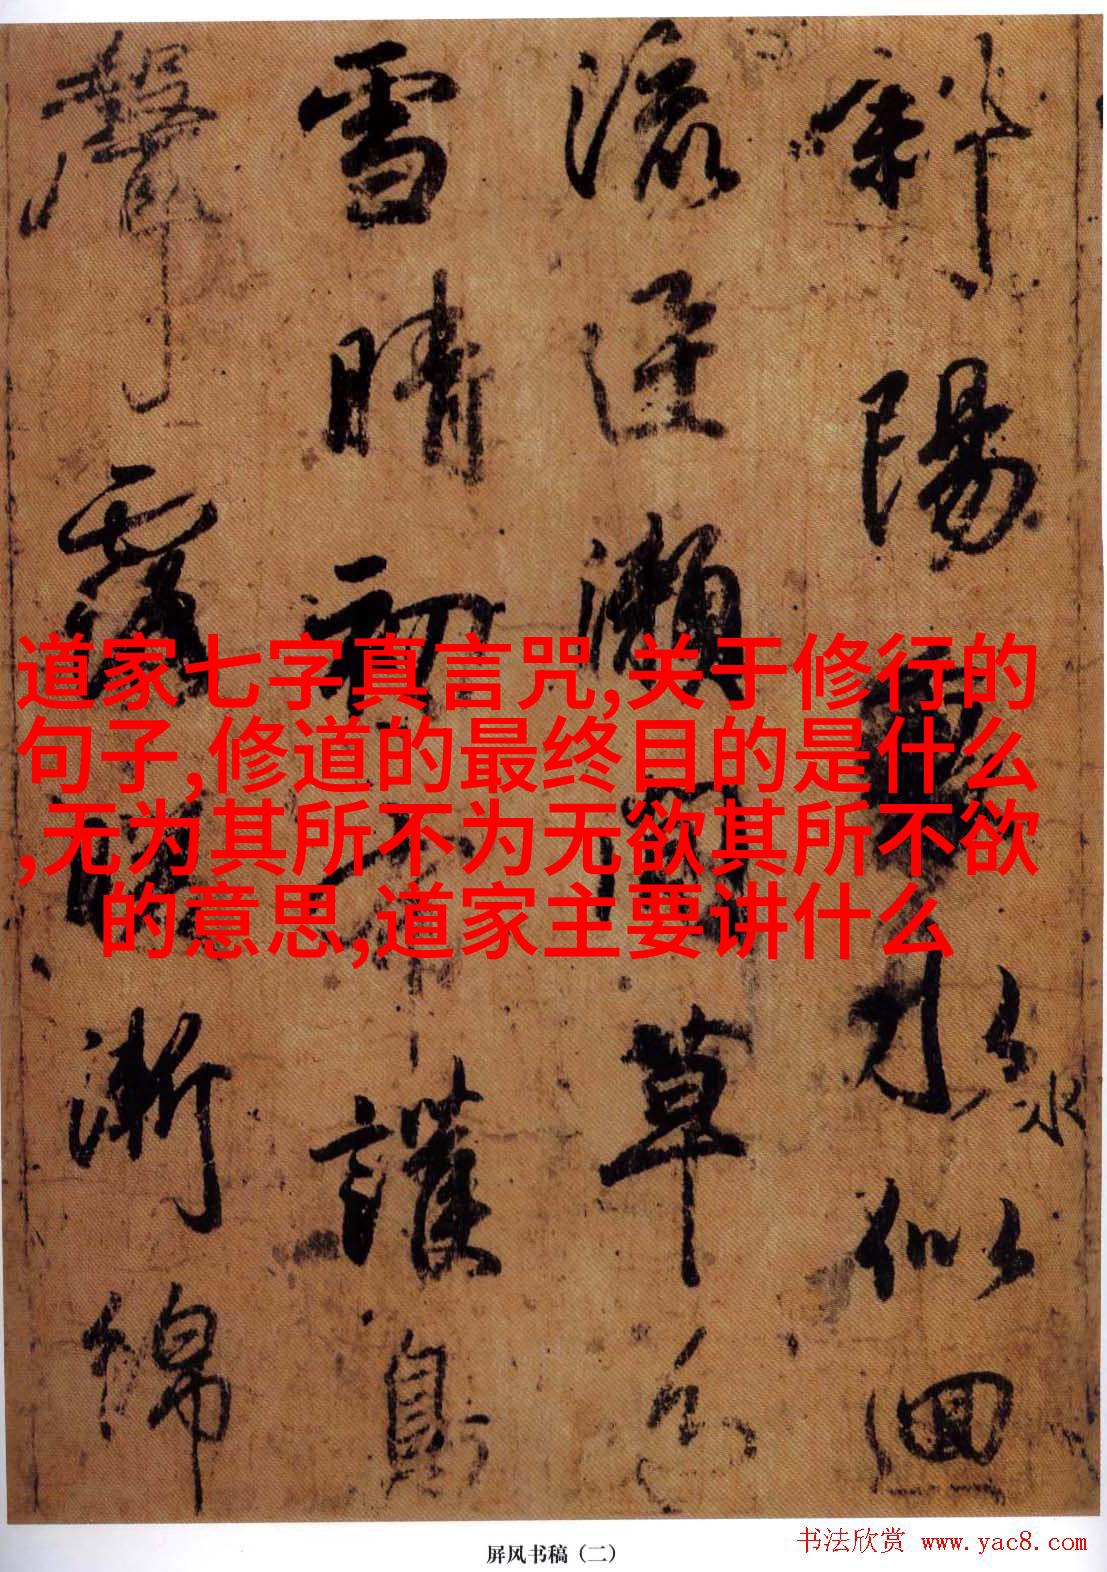 斜陽水似洄
瀬草色
雪晴初護鳥
聲漸綿
道家七字真言咒,关于修行的
句子,修道的最终目的是什么
,无为其所不为无欲其所不欲
的意思,道家主要讲什么
屏风书稿（二）
书法欣赏 www.yac8.com